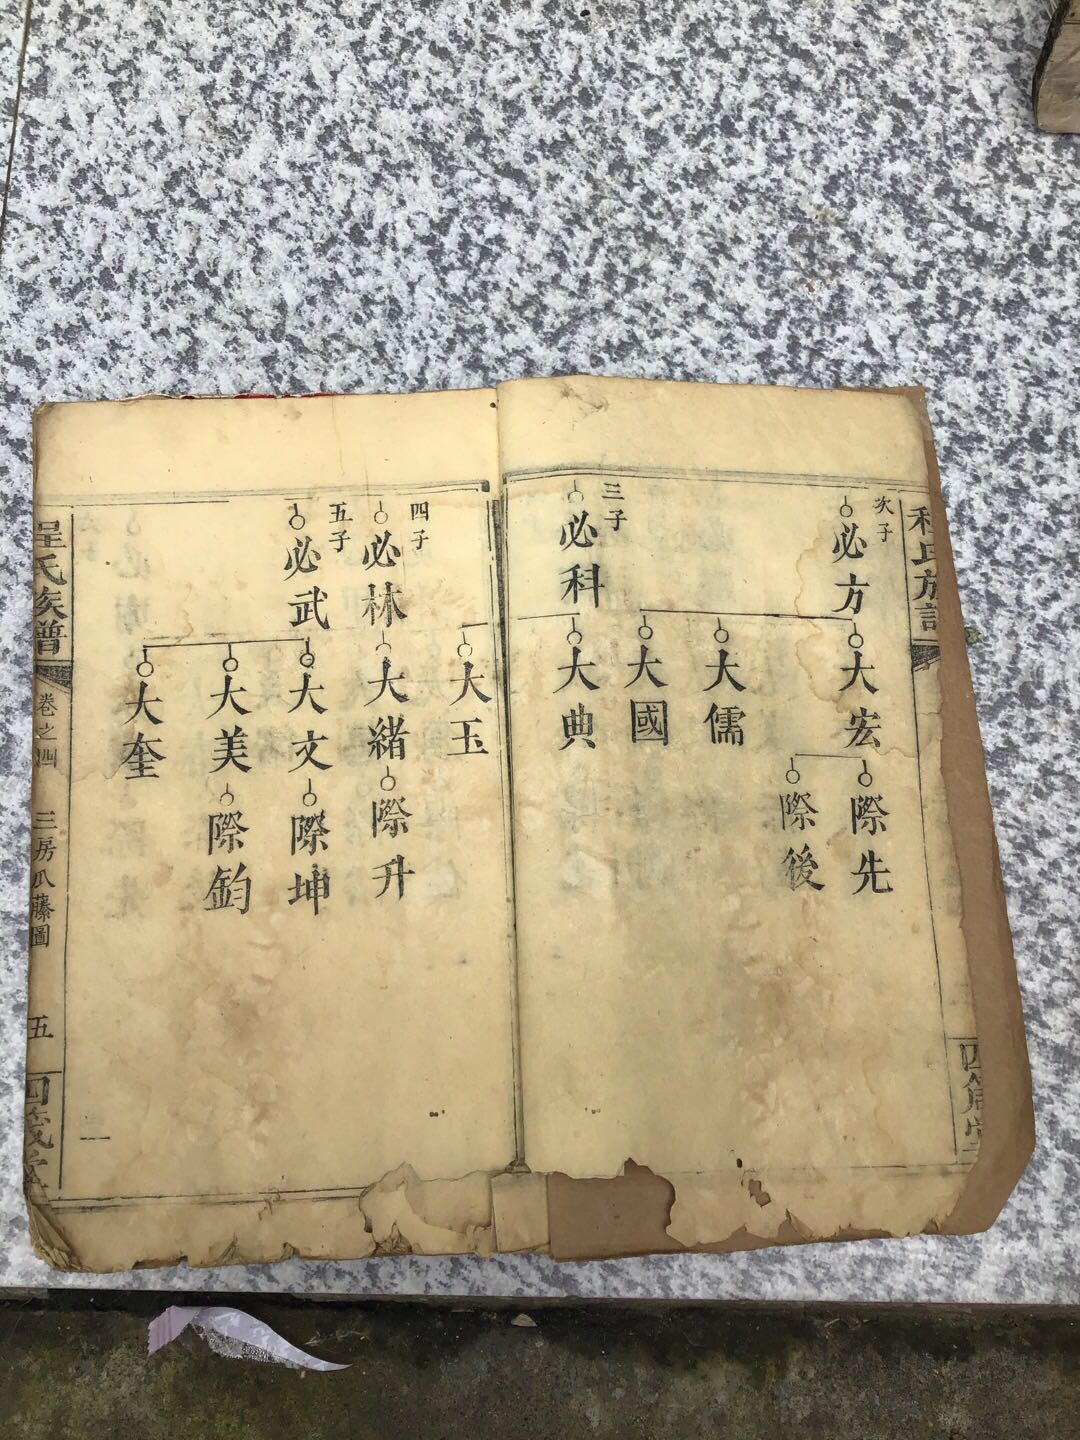 程氏族譜
次子
必方
大宏
際先
際後
大儒
大國
三子
必科
大典
大玉
四子
必林
大緒
際升
五子
必武
大文
際坤
大美
際鈞
大奎
程氏族譜
卷之四
三房瓜藤圖
五
四箴堂